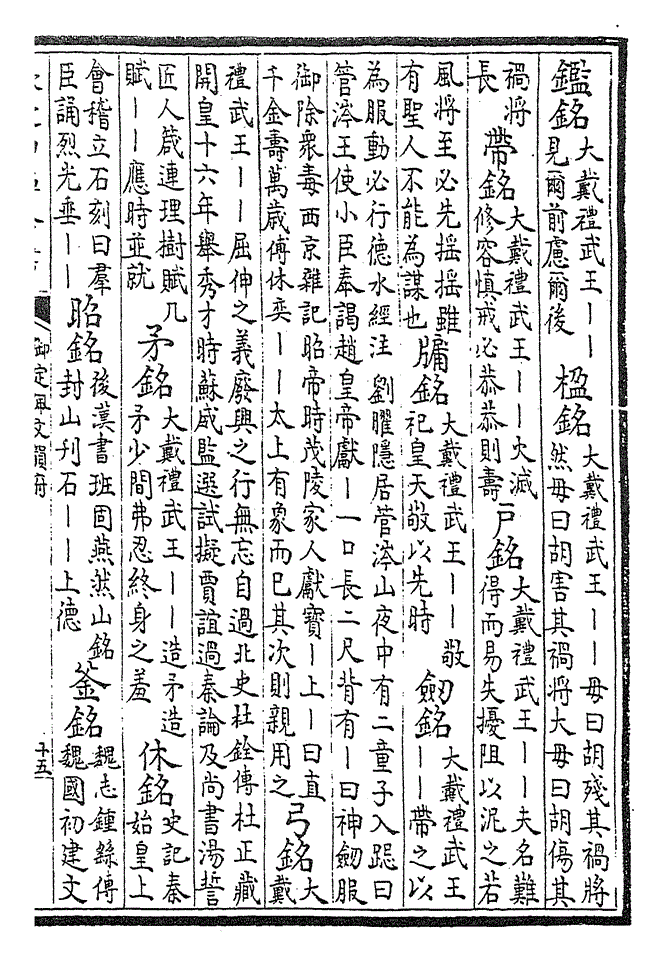 鑑銘大戴禮武王――見爾前慮爾後 楹銘大戴禮武王――毋曰胡殘其禍將然毋曰胡害其禍將大毋曰胡傷其
禍將長 帶銘大戴禮武王――火滅修容慎戒必恭恭則壽 户銘大戴禮武王――夫名難得而易失擾阻以泥之若
風將至必先揺揺雖有聖人不能為謀也 牖銘大戴禮武王――敬祀皇天敬以先時 劔銘大戴禮武王――帶之以
為服動必行德水經注 劉曜隱居管涔山夜中有二童子入跽曰管涔王使小臣奉謁趙皇帝獻―一口長二尺背有―曰神劔服
御除衆毒西京雜記昭帝時茂陵家人獻寳―上―曰直千金壽萬歲傅休奕――太上有象而已其次則親用之 弓銘大戴
禮武王――屈伸之義廢興之行無忘自過北史杜銓傳杜正藏開皇十六年舉秀才時蘇威監選試擬賈誼過秦論及尚書湯誓
匠人箴連理樹賦几賦――應時並就 矛銘大戴禮武王――造矛造矛少間弗忍終身之羞 休銘史記秦始皇上
會稽立石刻曰羣臣誦烈光垂―― 昭銘後漢書班固燕然山銘封山刋石――上德 釡銘魏志鍾繇傳魏國初建文
御定佩文韻府
十五